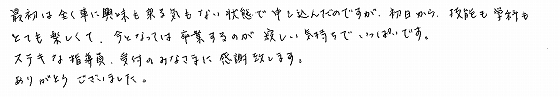 最初は全く車に興味も乗る気もない状態で申し込んだのですが、初日から、技能も学科も
とても楽しくて、今となっては卒業するのが寂しい気持ちでいっぱいです。
ステキな指導員、受付のみなさまに感謝致します。
ありがとうございました。